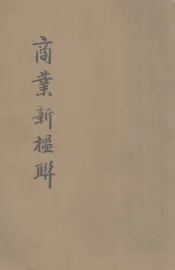 商業新楹聯